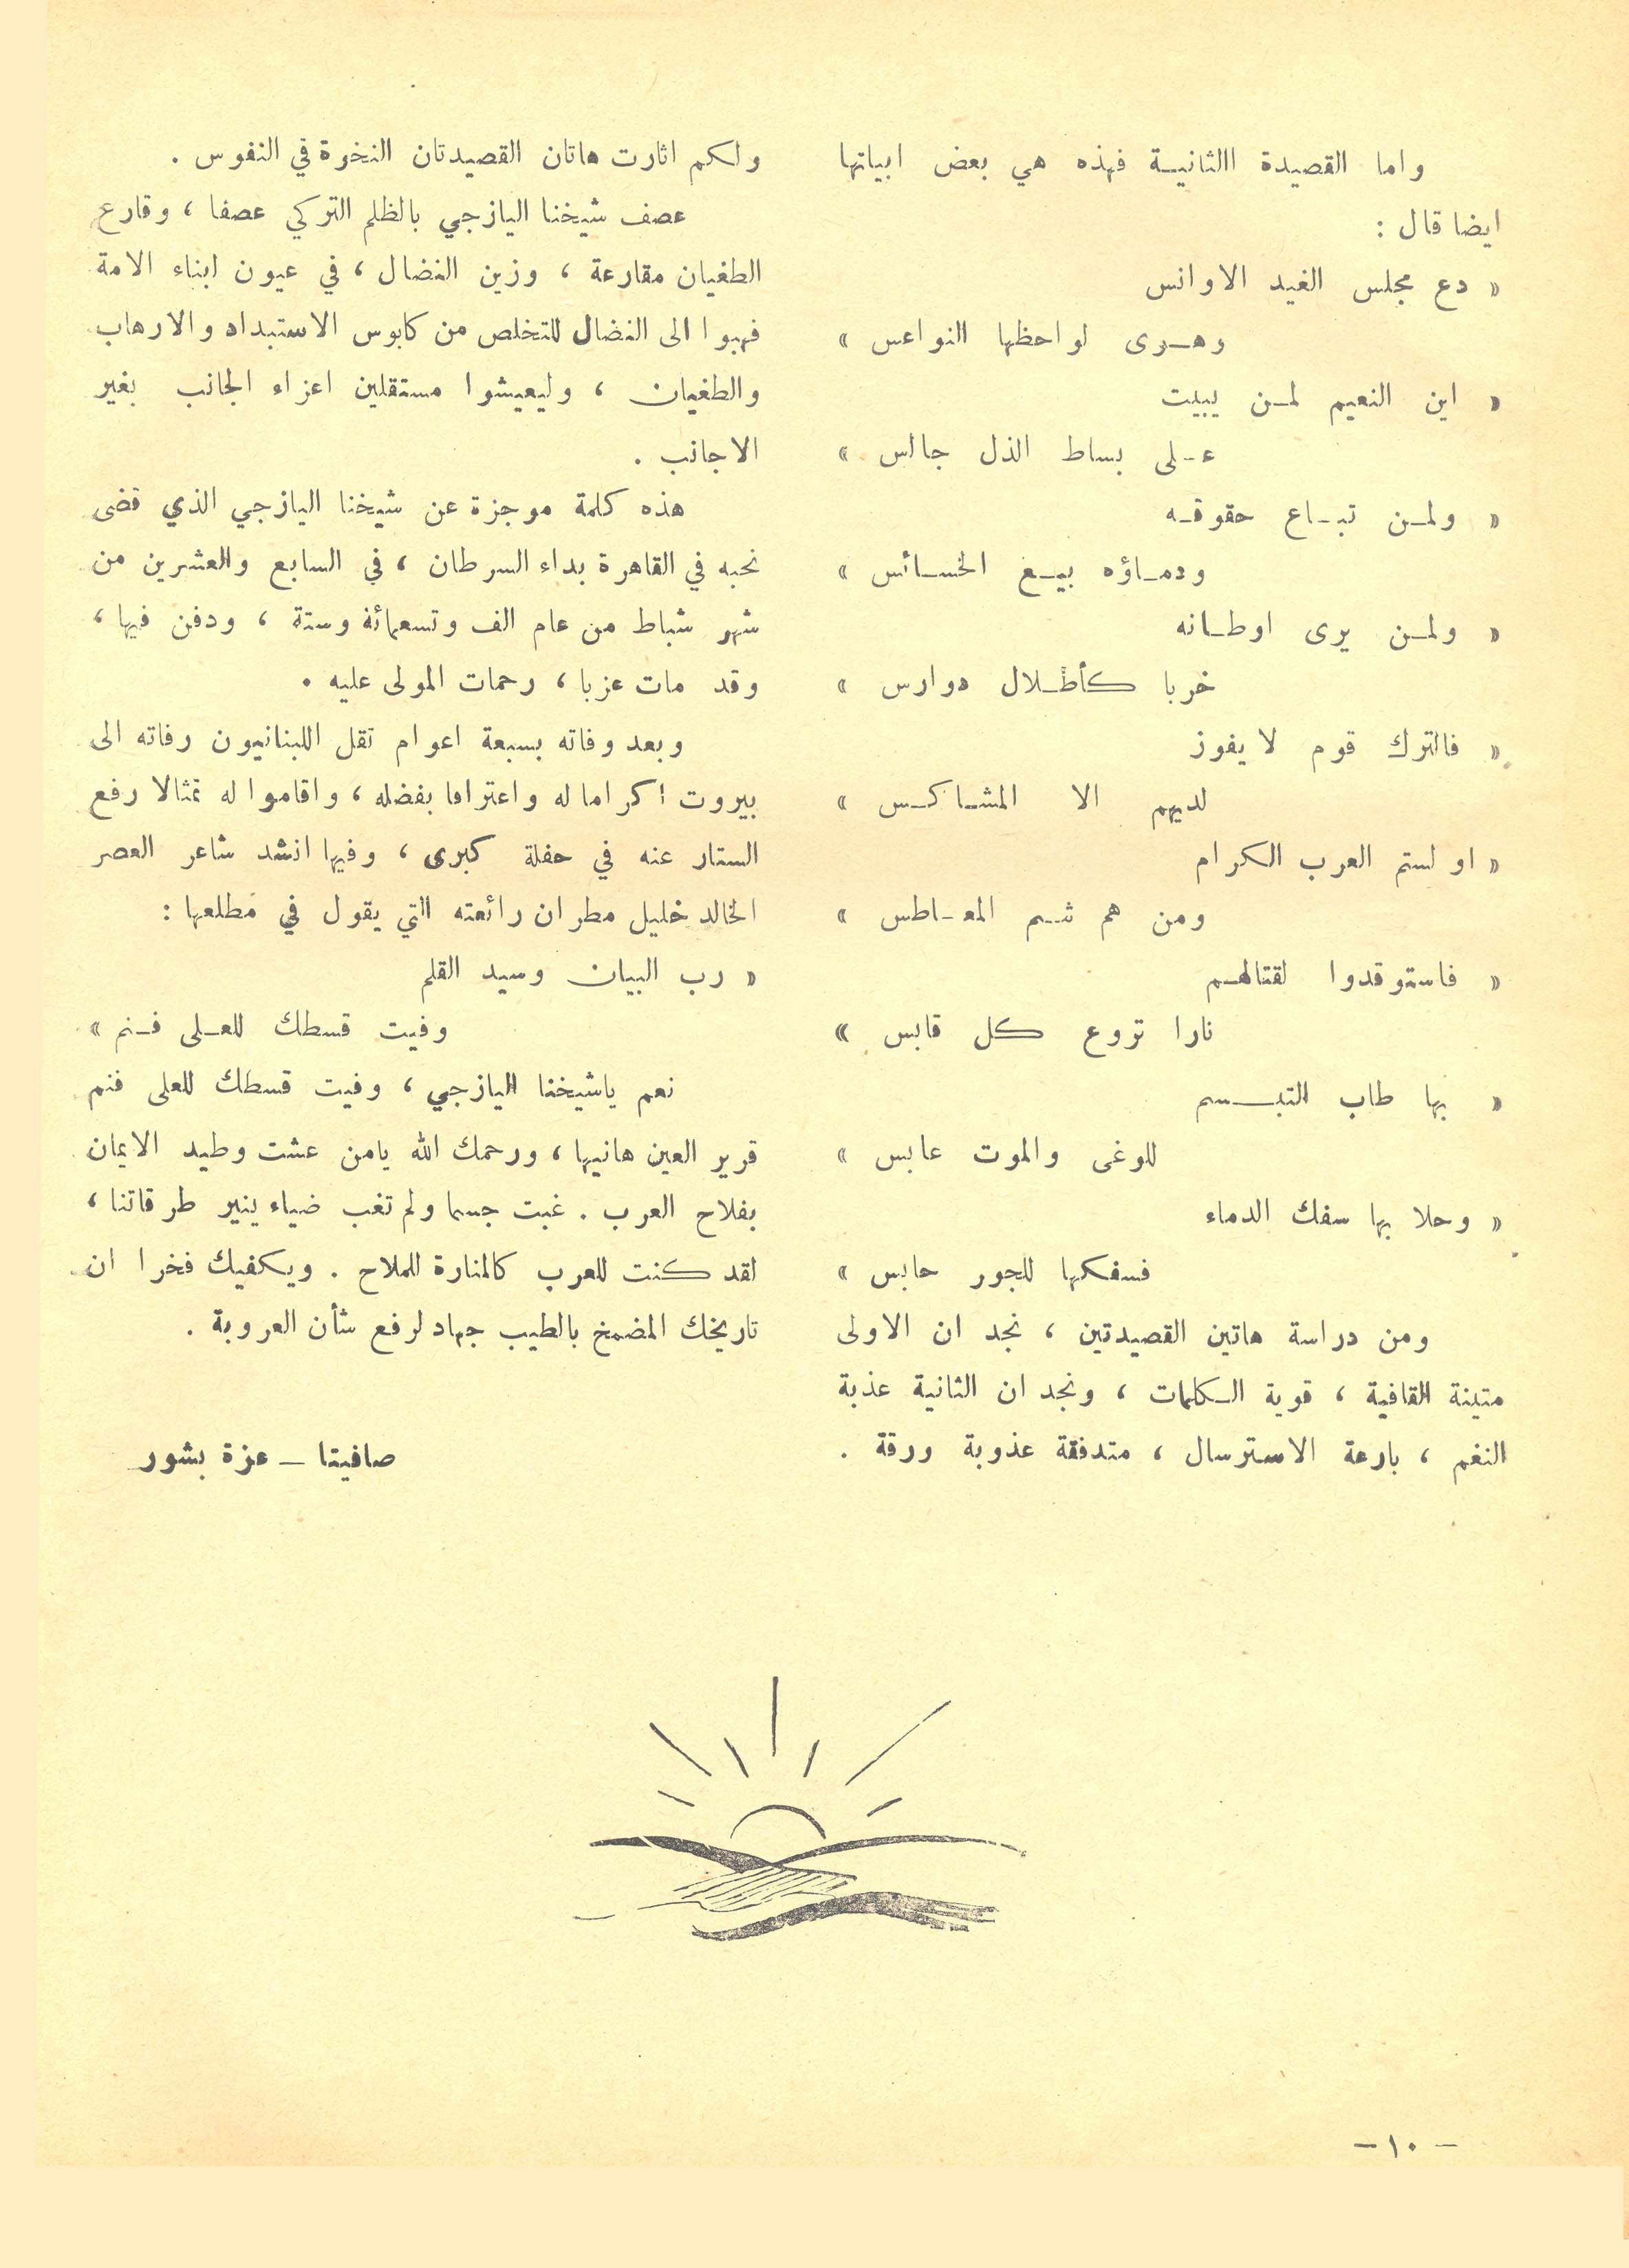 واما القصيدة االثانية فهذه هي بعض ابياتها
ايضا قال :
« دع مجلس الغيد الاوانس
وهوى لواحظها النواعس »
« اين النعيم لمن يبيت
على بساط الذل جالس »
« ولمن تباع حقوقه
ودماؤه بيع الخسائس »
« ولمن يرى اوطانه
خربا كأطلال دوارس »
« فالترك قوم لا يفوز
لديهم الا المشاكس »
« او لستم العرب الكرام
ومن هم شم المعاطس »
« فاستوقدوا لقتالهم
نارا تروع كل قابس »
« بها طاب التبسم
للوغى والموت عابس »
« وحلا بها سفك الدماء
فسفكها للجور حابس »
ومن دراسة هاتين القصيدتين ، نجد ان الاولى
متينة القافية ، قوية الكلمات ، ونجد ان الثانية عذبة
النغم ، بارعة الاسترسال ، متدفقة عذوبة ورقة .
ولكم اثارت هاتان القصيدتان النخوة في النفوس .
عصف شيخنا اليازجي بالظلم التركي عصفا ، وقارع
الطغيان مقارعة ، وزين النضال ، في عيون ابناء الامة
فهبوا الى النضال للتخلص من كابوس الاستبداد والارهاب
والطغيان ، وليعيشوا مستقلين اعزاء الجانب بغير
الاجانب .
هذه كلمة موجزة عن شيخنا اليازجي الذي قضى
نحبه في القاهرة بداء السرطان ، في السابع والعشرين من
شهر شباط من عام الف وتسعمائة وستة ، ودفن فيها ،
وقد مات عزبا ، رحمات المولى عليه .
وبعد وفاته بسبعة اعوام نقل اللبنانيون رفاته الى
بيروت اكراما له واعترافا بفضله ، واقاموا له تمثالا رفع
الستار عنه في حفلة كبرى ، وفيها انشد شاعر العصر
الخالد خليل مطران رائعته التي يقول في مطلعها :
« رب البيان وسيد القلم
وفيت قسطك للعلى فنم »
نعم ياشيخنا اليازجي ، وفيت قسطك للعلى فنم
قرير العين هانيها ، ورحمك الله يامن عشت وطيد الايمان
بفلاح العرب . غبت جسما ولم تغب ضياء ينير طرقاتنا ،
لقد كنت للعرب كالمنارة للملاح . ويكفيك فخرا ان
تاريخك المضمخ بالطيب جهاد لرفع شأن العروبة .
صافيتا – عزة بشور
– ١٠ –